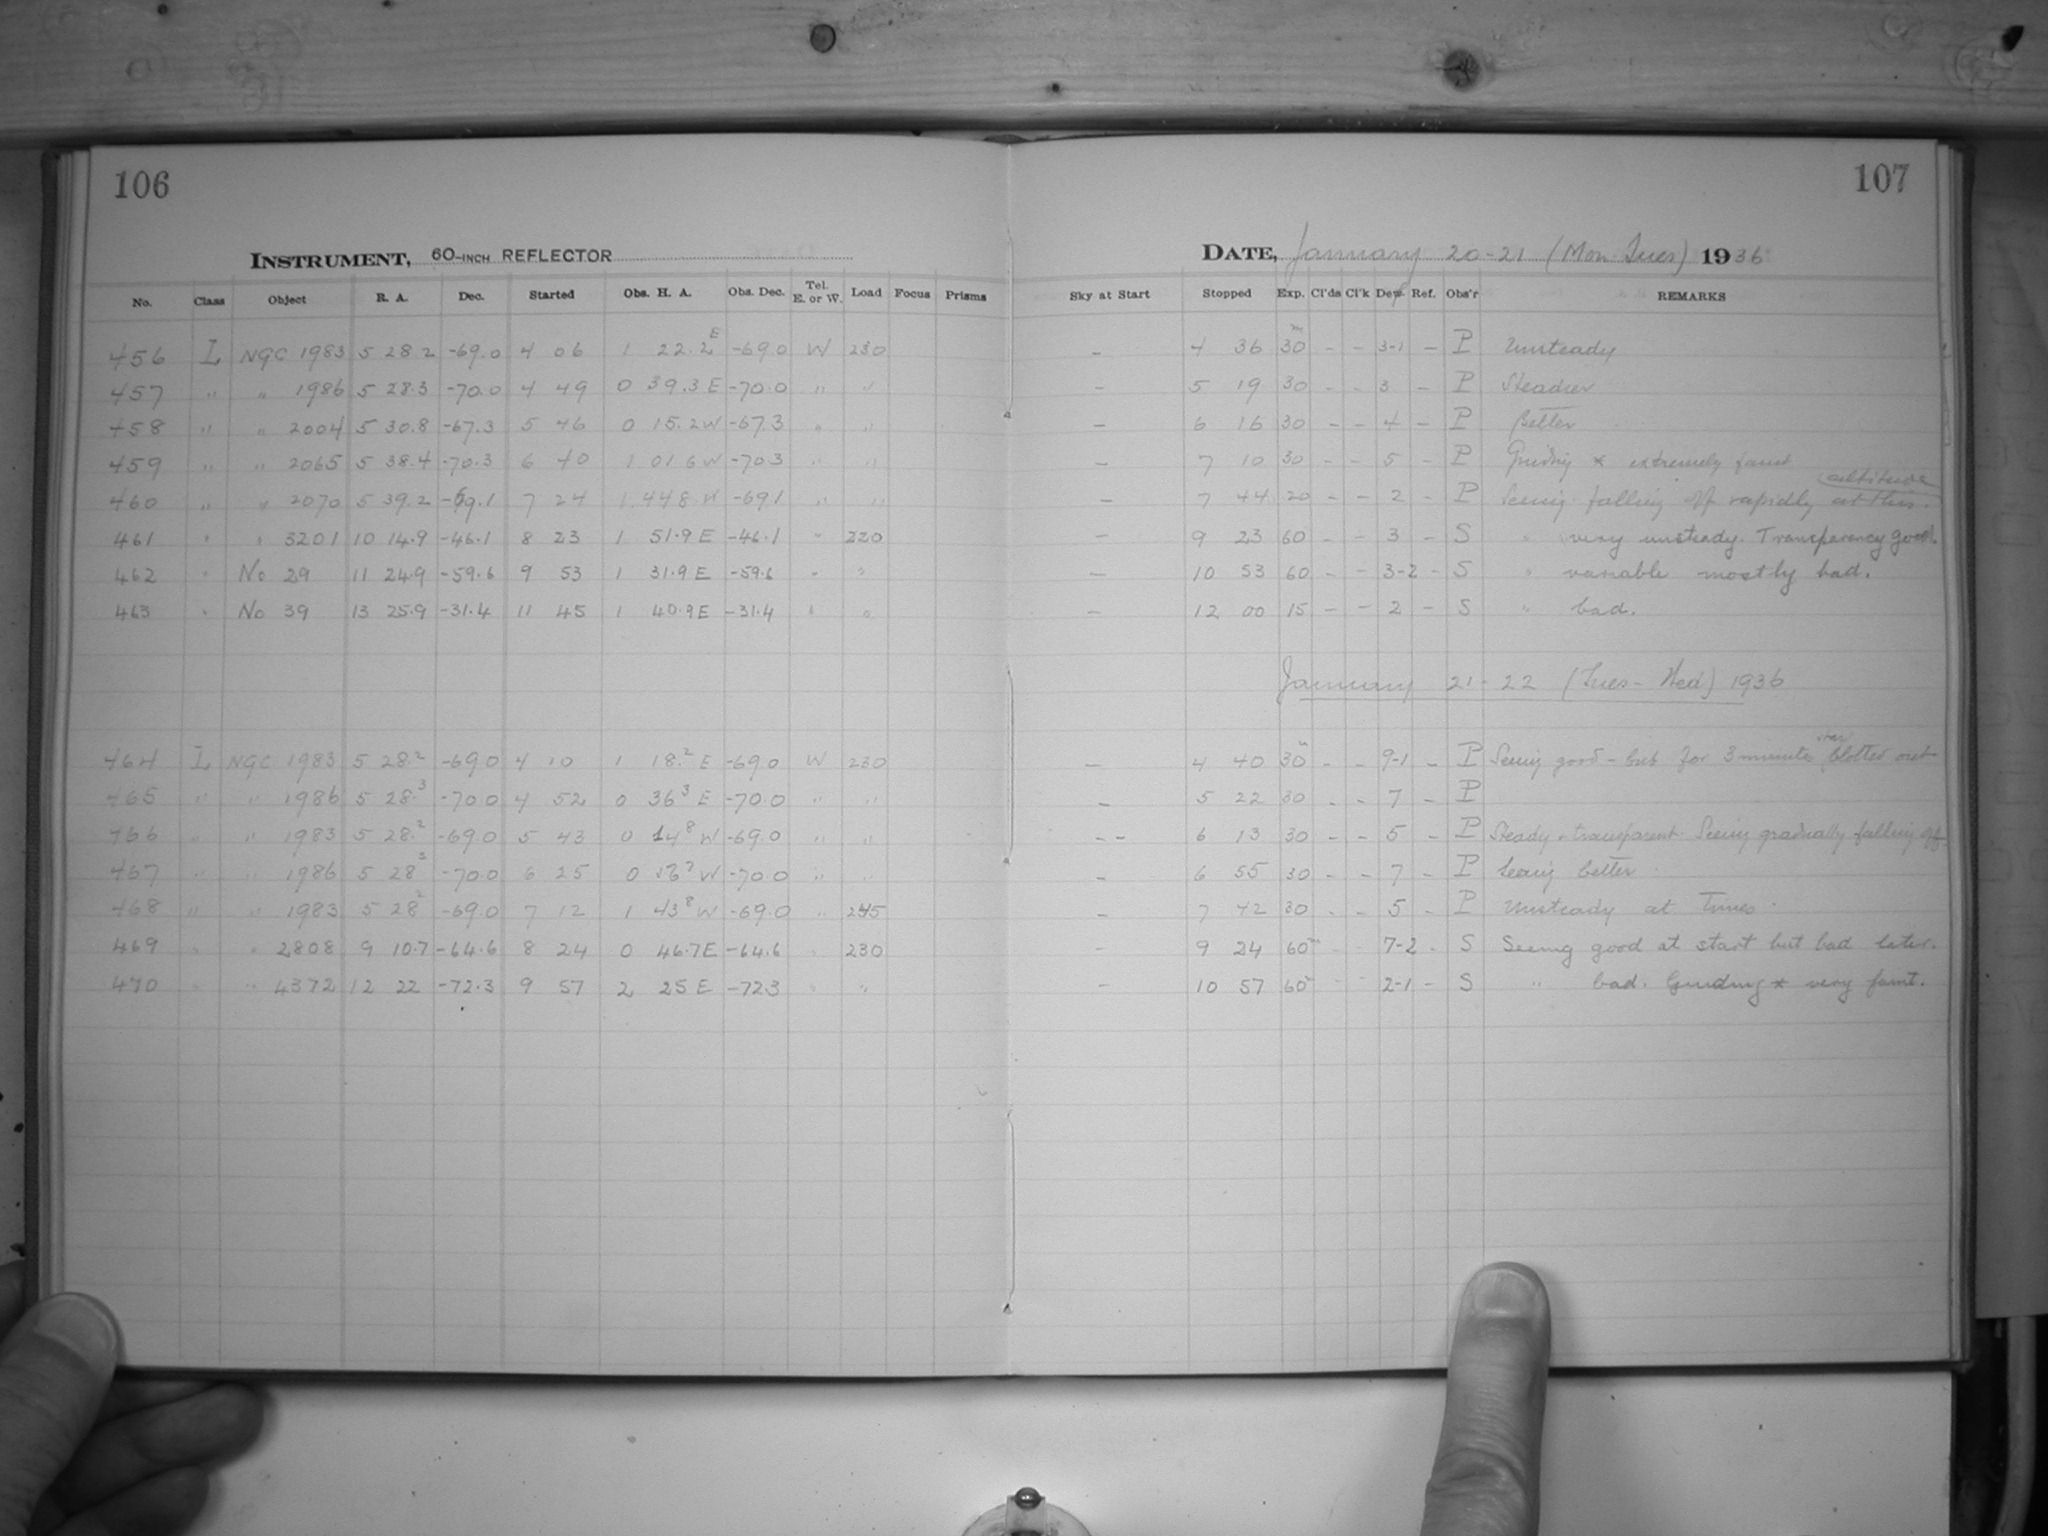 106
107
INSTRUMENT, 60-INCH REFLECTOR
DATE, January 20-21 (Mon Tues) 1936
No. Class Object R. A. Dec. Started Obs. H. A. Obs. Dec. Tel. E. or W. Load Focus Prisms Sky at Start Stopped Exp. Cl'ds Cl'k Dew Ref. Obs'r REMARKS
456 L NGC 1983 5 28.2 -69.0 4 06 1 22.2 E -69.0 W 230 - 4 36 30m - - 3-1 - P Unsteady
457 " " 1986 5 28.3 -70.0 4 49 0 39.3 E -70.0 " " - 5 19 30 - - 3 - P Steadier
458 " " 2004 5 30.8 -67.3 5 46 0 15.2 W -67.3 " " - 6 16 30 - - 4 - P Better
459 " " 2065 5 38.4 -70.3 6 40 1 01.6 W -70.3 " " - 7 10 30 - - 5 - P Guiding * extremely faint
460 " " 2070 5 39.2 -69.1 7 24 1 44.8 W -69.1 " " - 7 44 20 - - 2 - P Seeing falling off rapidly at this altitude
461 " " 3201 10 14.9 -46.1 8 23 1 51.9 E -46.1 " 220 - 9 23 60 - - 3 - S " very unsteady. Transparency good.
462 " No 29 11 24.9 -59.6 9 53 1 31.9 E -59.6 " " - 10 53 60 - - 3-2 - S " variable mostly bad.
463 " No 39 13 25.9 -31.4 11 45 1 40.9 E -31.4 " " - 12 00 15 - - 2 - S " bad.
January 21-22 (Tues-Wed) 1936
464 L NGC 1983 5 28.2 -69.0 4 10 1 18.2 E -69.0 W 230 - 4 40 30m - - 9-1 - P Seeing good - but for 3 minutes star blotted out
465 " " 1986 5 28.3 -70.0 4 52 0 36.3 E -70.0 " " - 5 22 30 - - 7 - P
466 " " 1983 5 28.2 -69.0 5 43 0 14.8 W -69.0 " " - - 6 13 30 - - 5 - P Steady + transparent. Seeing gradually falling off
467 " " 1986 5 28.3 -70.0 6 25 0 W -70.0 " " - 6 55 30 - - 7 - P Seeing better.
468 " " 1983 5 28.2 -69.0 7 12 1 43.8 W -69.0 " 245 - 7 42 30 - - 5 - P Unsteady at times.
469 " " 2808 9 10.7 -64.6 8 24 0 46.7 E -64.6 " 230 - 9 24 60m - - 7-2 - S Seeing good at start but bad later.
470 " " 4372 12 22 -72.3 9 57 2 25 E -72.3 " " - 10 57 60 - - 2-1 - S " bad. Guiding * very faint.